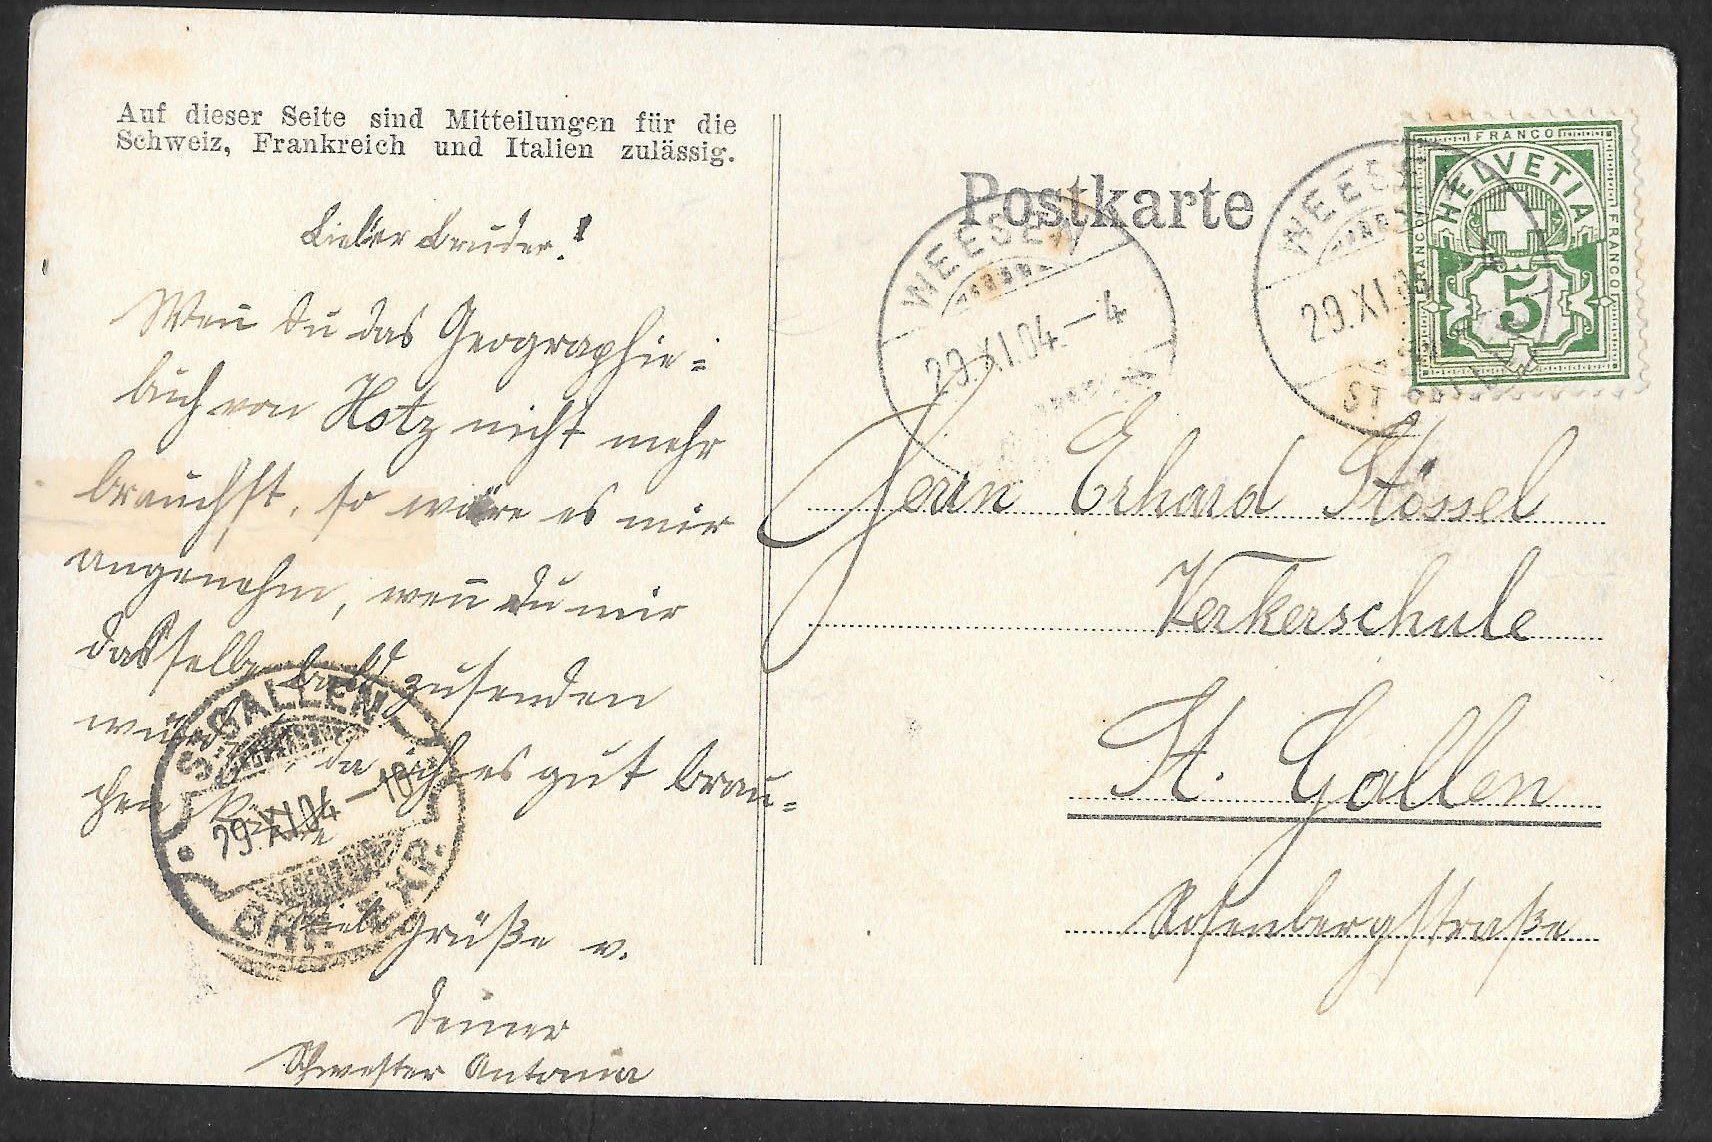 Auf dieser Seite sind Mitteilungen für die
Schweiz, Frankreich und Italien zulässig.
Lieber Bruder!
Wen̅ du das Geographie=
buch von Hotz nicht mehr
brauchst, so wäre es mir
angenehm, wen̅ du mir
dasselbe bald zusenden
würdest, da ich es gut brau=
chen könnte
Viele Grüße v.
deiner
Schwester Antonia
Postkarte
WEESEN
29.XI.04.–4
WEESEN
29.XI.04
ST GALLEN
FRANCO
HELVETIA
FRANCO
FRANCO
5
Herrn Erhard Stössel
Verkerschule
St. Gallen
Rosenbergstraße
ST. GALLEN
29.XI.04–10
BRF. EXP.